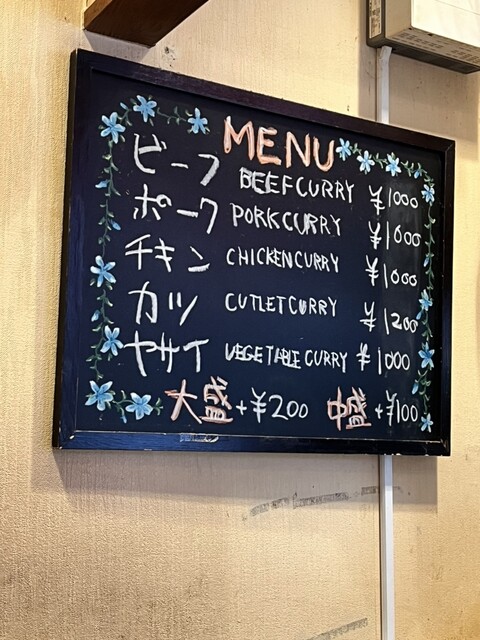 MENU
ビーフ BEEFCURRY ¥1000
ポーク PORKCURRY ¥1000
チキン CHICKENCURRY ¥1000
カツ CUTLETCURRY ¥1200
ヤサイ VEGETABLECURRY ¥1000
大盛+¥200 中盛+¥100